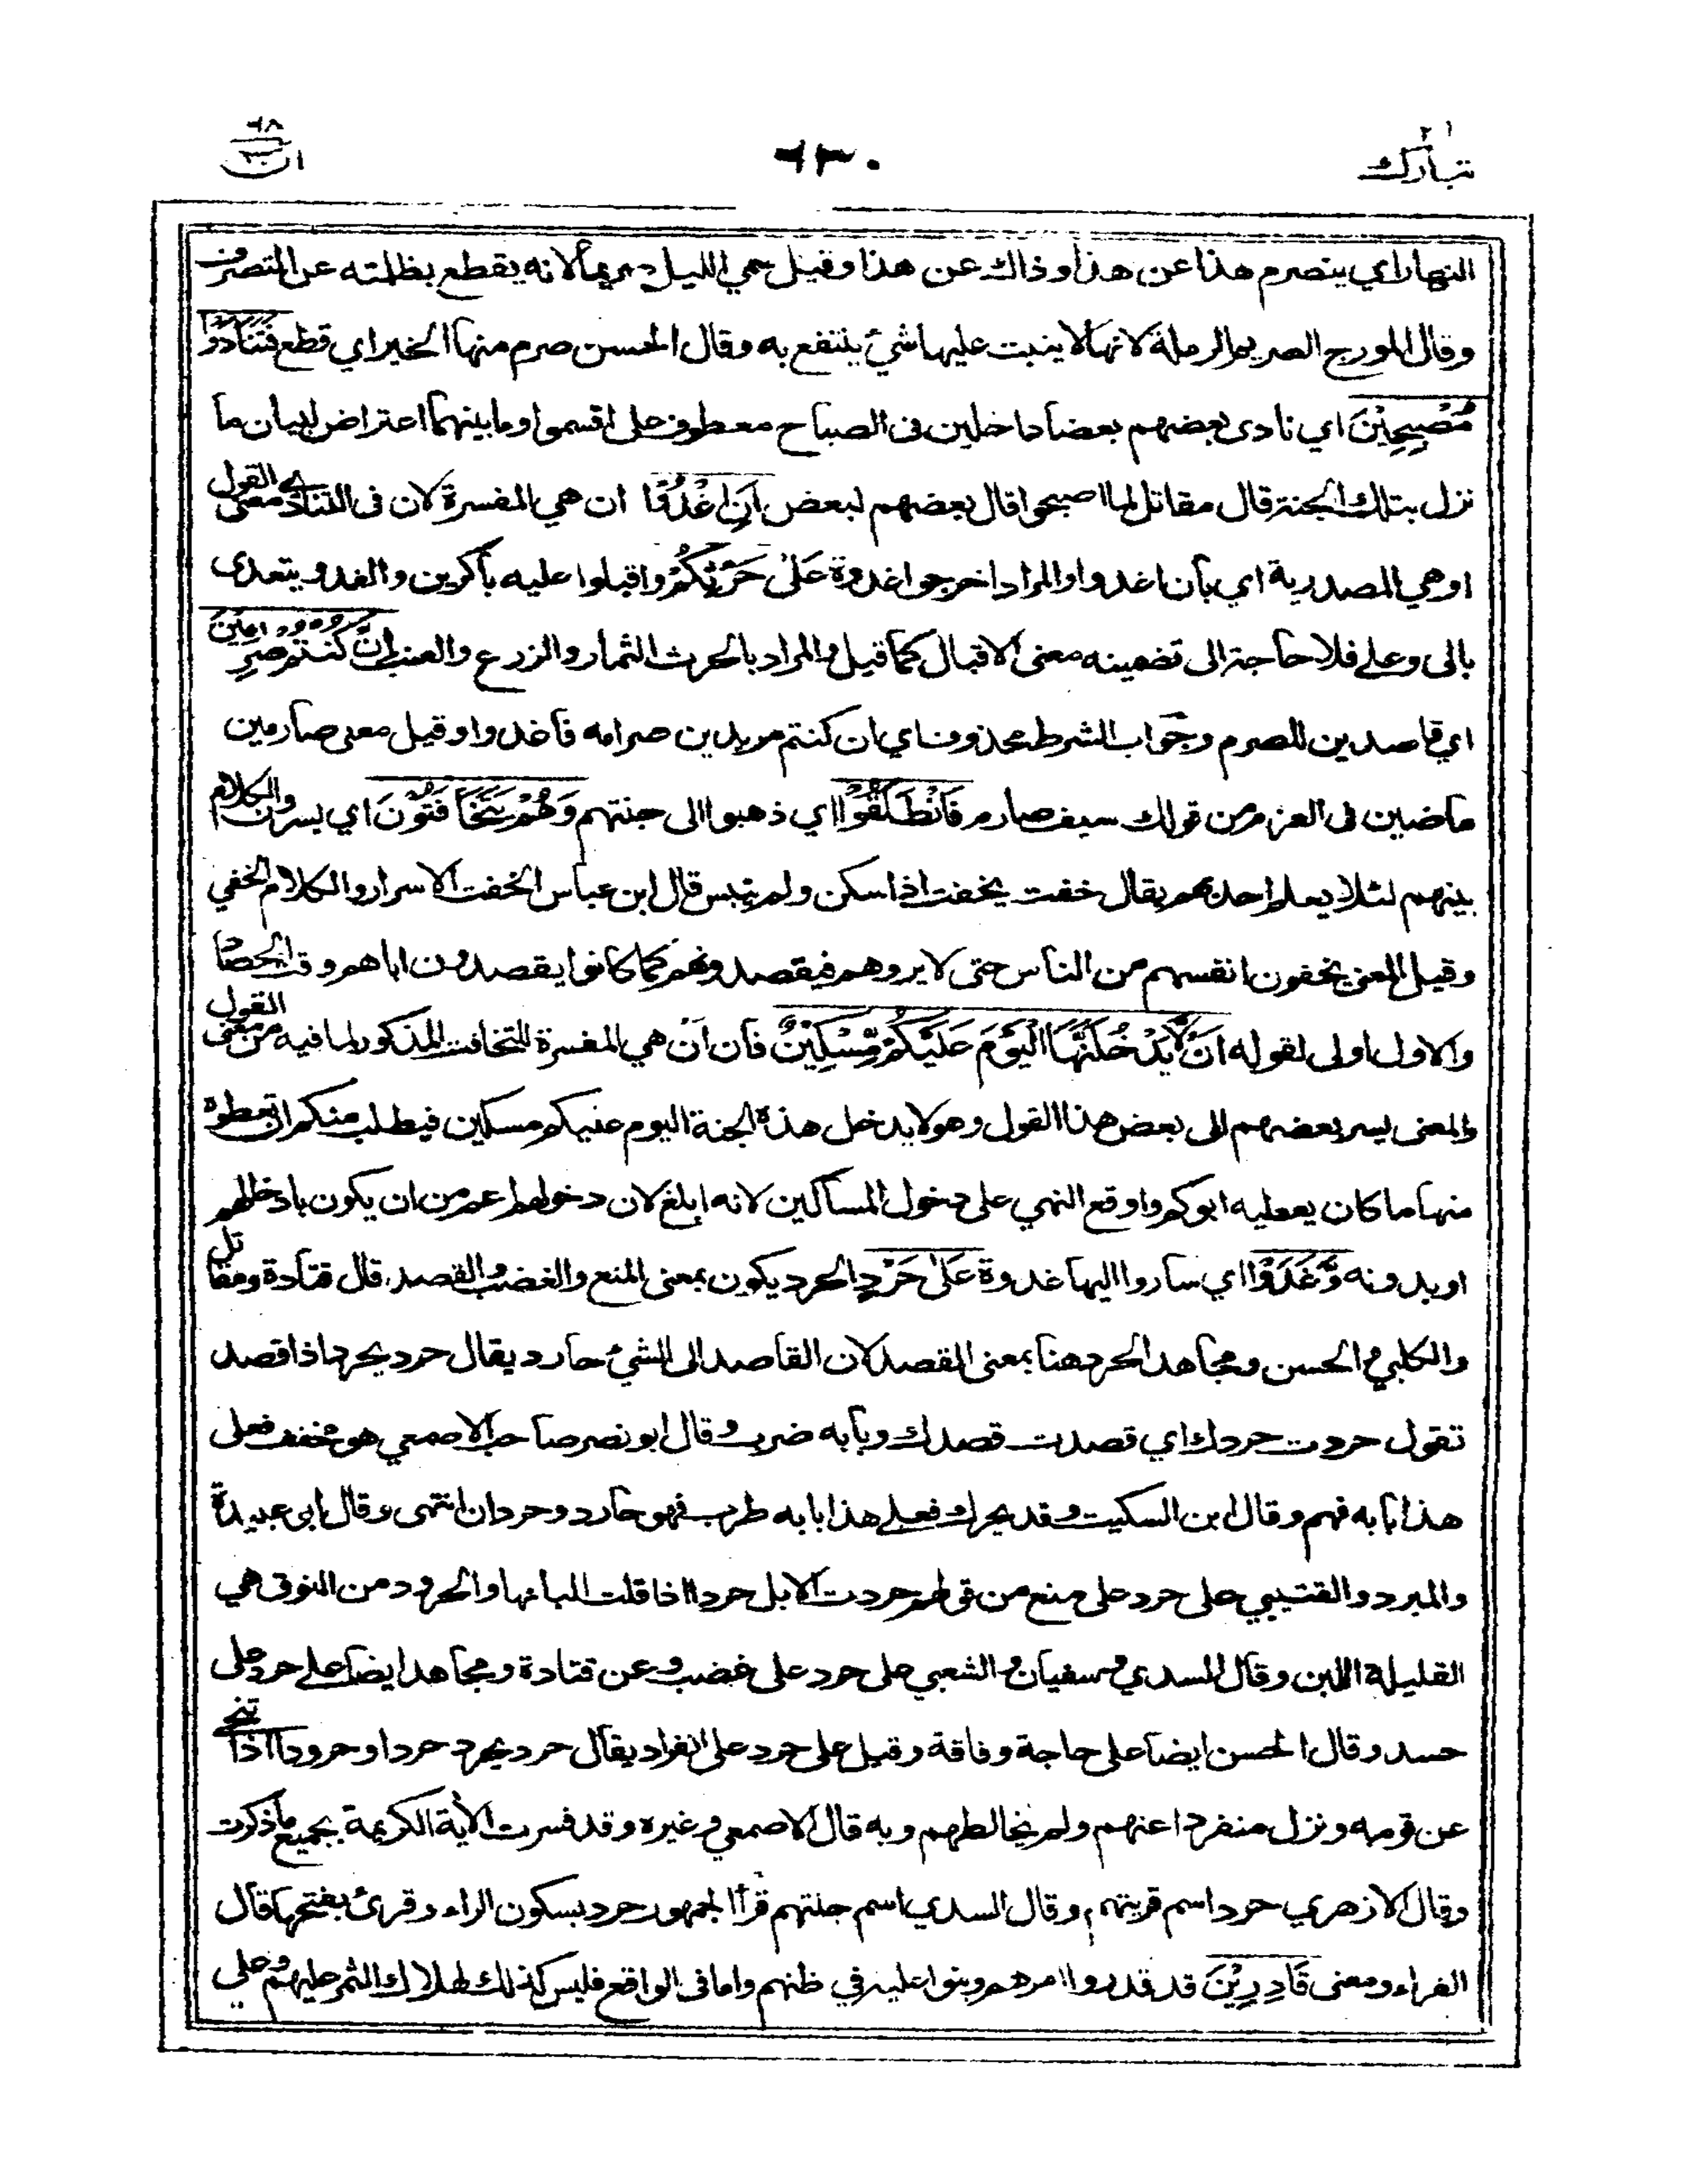 تبارك ٢
٦٣٠
ن ٦٨
النهار اي ينصرم هذا عن هذا وذاك عن هذا وقيل سمي الليل صريما لانه يقطع بظلمته عن التصرف
وقال المورج الصريم الرملة لانها لا ينبت عليها شيء ينتفع به وقال الحسن صرم منها الخير اي قطع فَتَنَادَوْا
مُصْبِحِيْنَ اي نادى بعضهم بعضا داخلين فى الصباح معطوف على اقسموا وما بينهما اعتراض لبيان ما
نزل بتلك الجنة قال مقاتل لما اصبحوا قال بعضهم لبعض اَنِ اغْدُوْا ان هي المفسرة لان فى التنادي معنى القول
او هي المصدرية اي بأن اغدوا والمراد اخرجوا غدوة عَلٰى حَرْثِكُمْ واقبلوا عليه باكرين والغدو يتعدى
بالى وعلى فلا حاجة الى تضمينه معنى الاقبال كما قيل والمراد بالحرث الثمار والزرع والعنب اِنْ كُنْتُمْ صٰرِمِيْنَ
اي قاصدين للصرم وجواب الشرط محذوف اي ان كنتم مريدين صرامه فاغدوا وقيل معنى صارمين
ماضين فى العزم من قولك سيف صارم فَانْطَلَقُوْا اي ذهبوا الى جنتهم وَهُمْ يَتَخَافَتُوْنَ اي يسرون الكلام
بينهم لئلا يعلم احد بهم يقال خفت يخفت اذا سكن ولم ينبس قال ابن عباس الخفت الاسرار والكلام الخفي
وقيل المعنى يخفون انفسهم من الناس حتى لا يروهم فيقصدونهم كما كانوا يقصدون اباهم وقت الحصاد
والاول اولى لقوله اَنْ لَّا يَدْخُلَنَّهَا الْيَوْمَ عَلَيْكُمْ مِّسْكِيْنٌ فان أن هي المفسرة للتخافت المذكور لما فيه من معنى القول
والمعنى يسر بعضهم الى بعض هذا القول وهو لا يدخل هذه الجنة اليوم عليكم مسكين فيطلب منكم ان تعطوه
منها ما كان يعطيه ابوكم واوقع النهي على دخول المساكين لانه ابلغ لان دخولهم اعم من ان يكون بادخالهم
او بدونه وَّغَدَوْا اي ساروا اليها غدوة عَلٰى حَرْدٍ الحرد يكون بمعنى المنع والغضب والقصد قال قتادة ومقاتل
والكلبي والحسن ومجاهد الحرد هنا بمعنى القصد لان القاصد الى الشيء حارد يقال حرد يحرد اذا قصد
تقول حردت حردك اي قصدت قصدك وبابه ضرب وقال ابو نصر صاحب الاصمعي هو مخفف فعلى
هذا بابه فهم وقال ابن السكيت وقد يحرك فعلى هذا بابه طرب فهو حارد وحردان انتهى وقال ابى عبيدة
والمبرد والقتيبي على حرد على منع من قولهم حردت الابل حردا اذا قلت البانها والحرود من النوق هي
القليلة اللبن وقال السدي وسفيان والشعبي على حرد على غضب وعن قتادة ومجاهد ايضا على حرد على
حسد وقال الحسن ايضا على حاجة وفاقة وقيل على حرد على انفراد يقال حرد يحرد حردا وحرودا اذا تنحى
عن قومه ونزل منفردا عنهم ولم يخالطهم وبه قال الاصمعي وغيره وقد فسرت الأية الكريمة بجميع ما ذكرت
وقال الازهري حرد اسم قريتهم وقال السدي اسم جنتهم قرأ الجمهور حرد بسكون الراء وقرئ بفتحها قال
الفراء ومعنى قَادِرِيْنَ قد قدروا امرهم وبنوا عليه في ظنهم واما فى الواقع فليس كذلك لهلاك الثمر عليهم وعلى